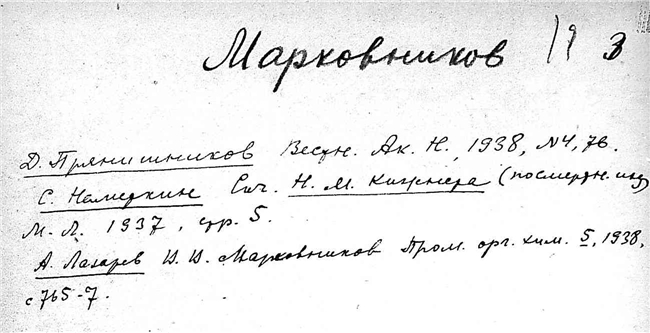 Марковников 11 3
Д. Прянишников Вестн. Ак. Н., 1938, №4, 76.
С. Наметкин Соч. Н. М. Кижнера (посмертн. изд)
М.-Л. 1937, стр. 5.
А. Лазарев В. В. Марковников Пром. орг. хим. 5, 1938,
с 765-7.